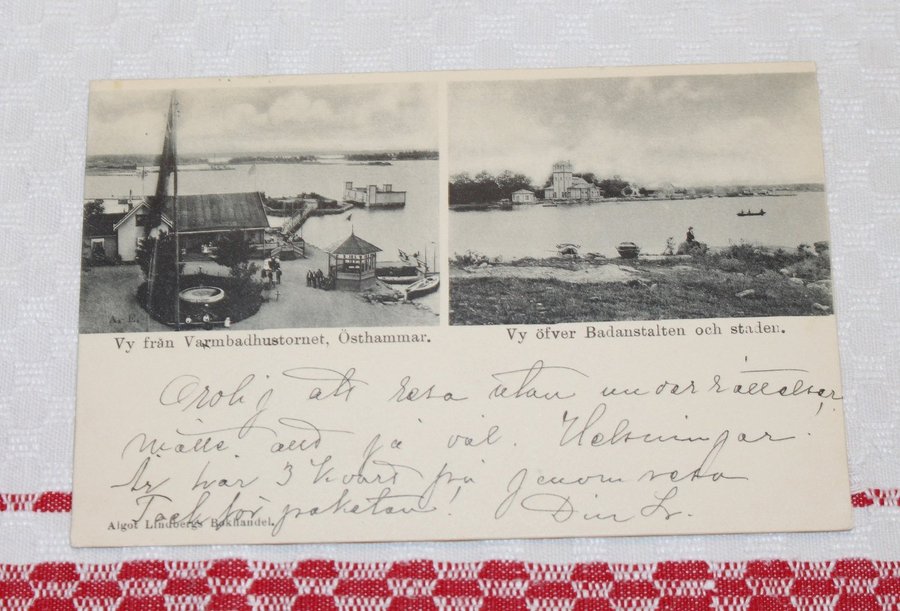 A. L.
Vy från Varmbadhustornet, Östhammar.
Vy öfver Badanstalten och staden.
Orolig att resa utan underrättelser,
måtte allt gå väl. Helsningar.
Är här 3 kvart på genomresa
Tack för paketen! Din Lr.
Algot Lindbergs Bokhandel.